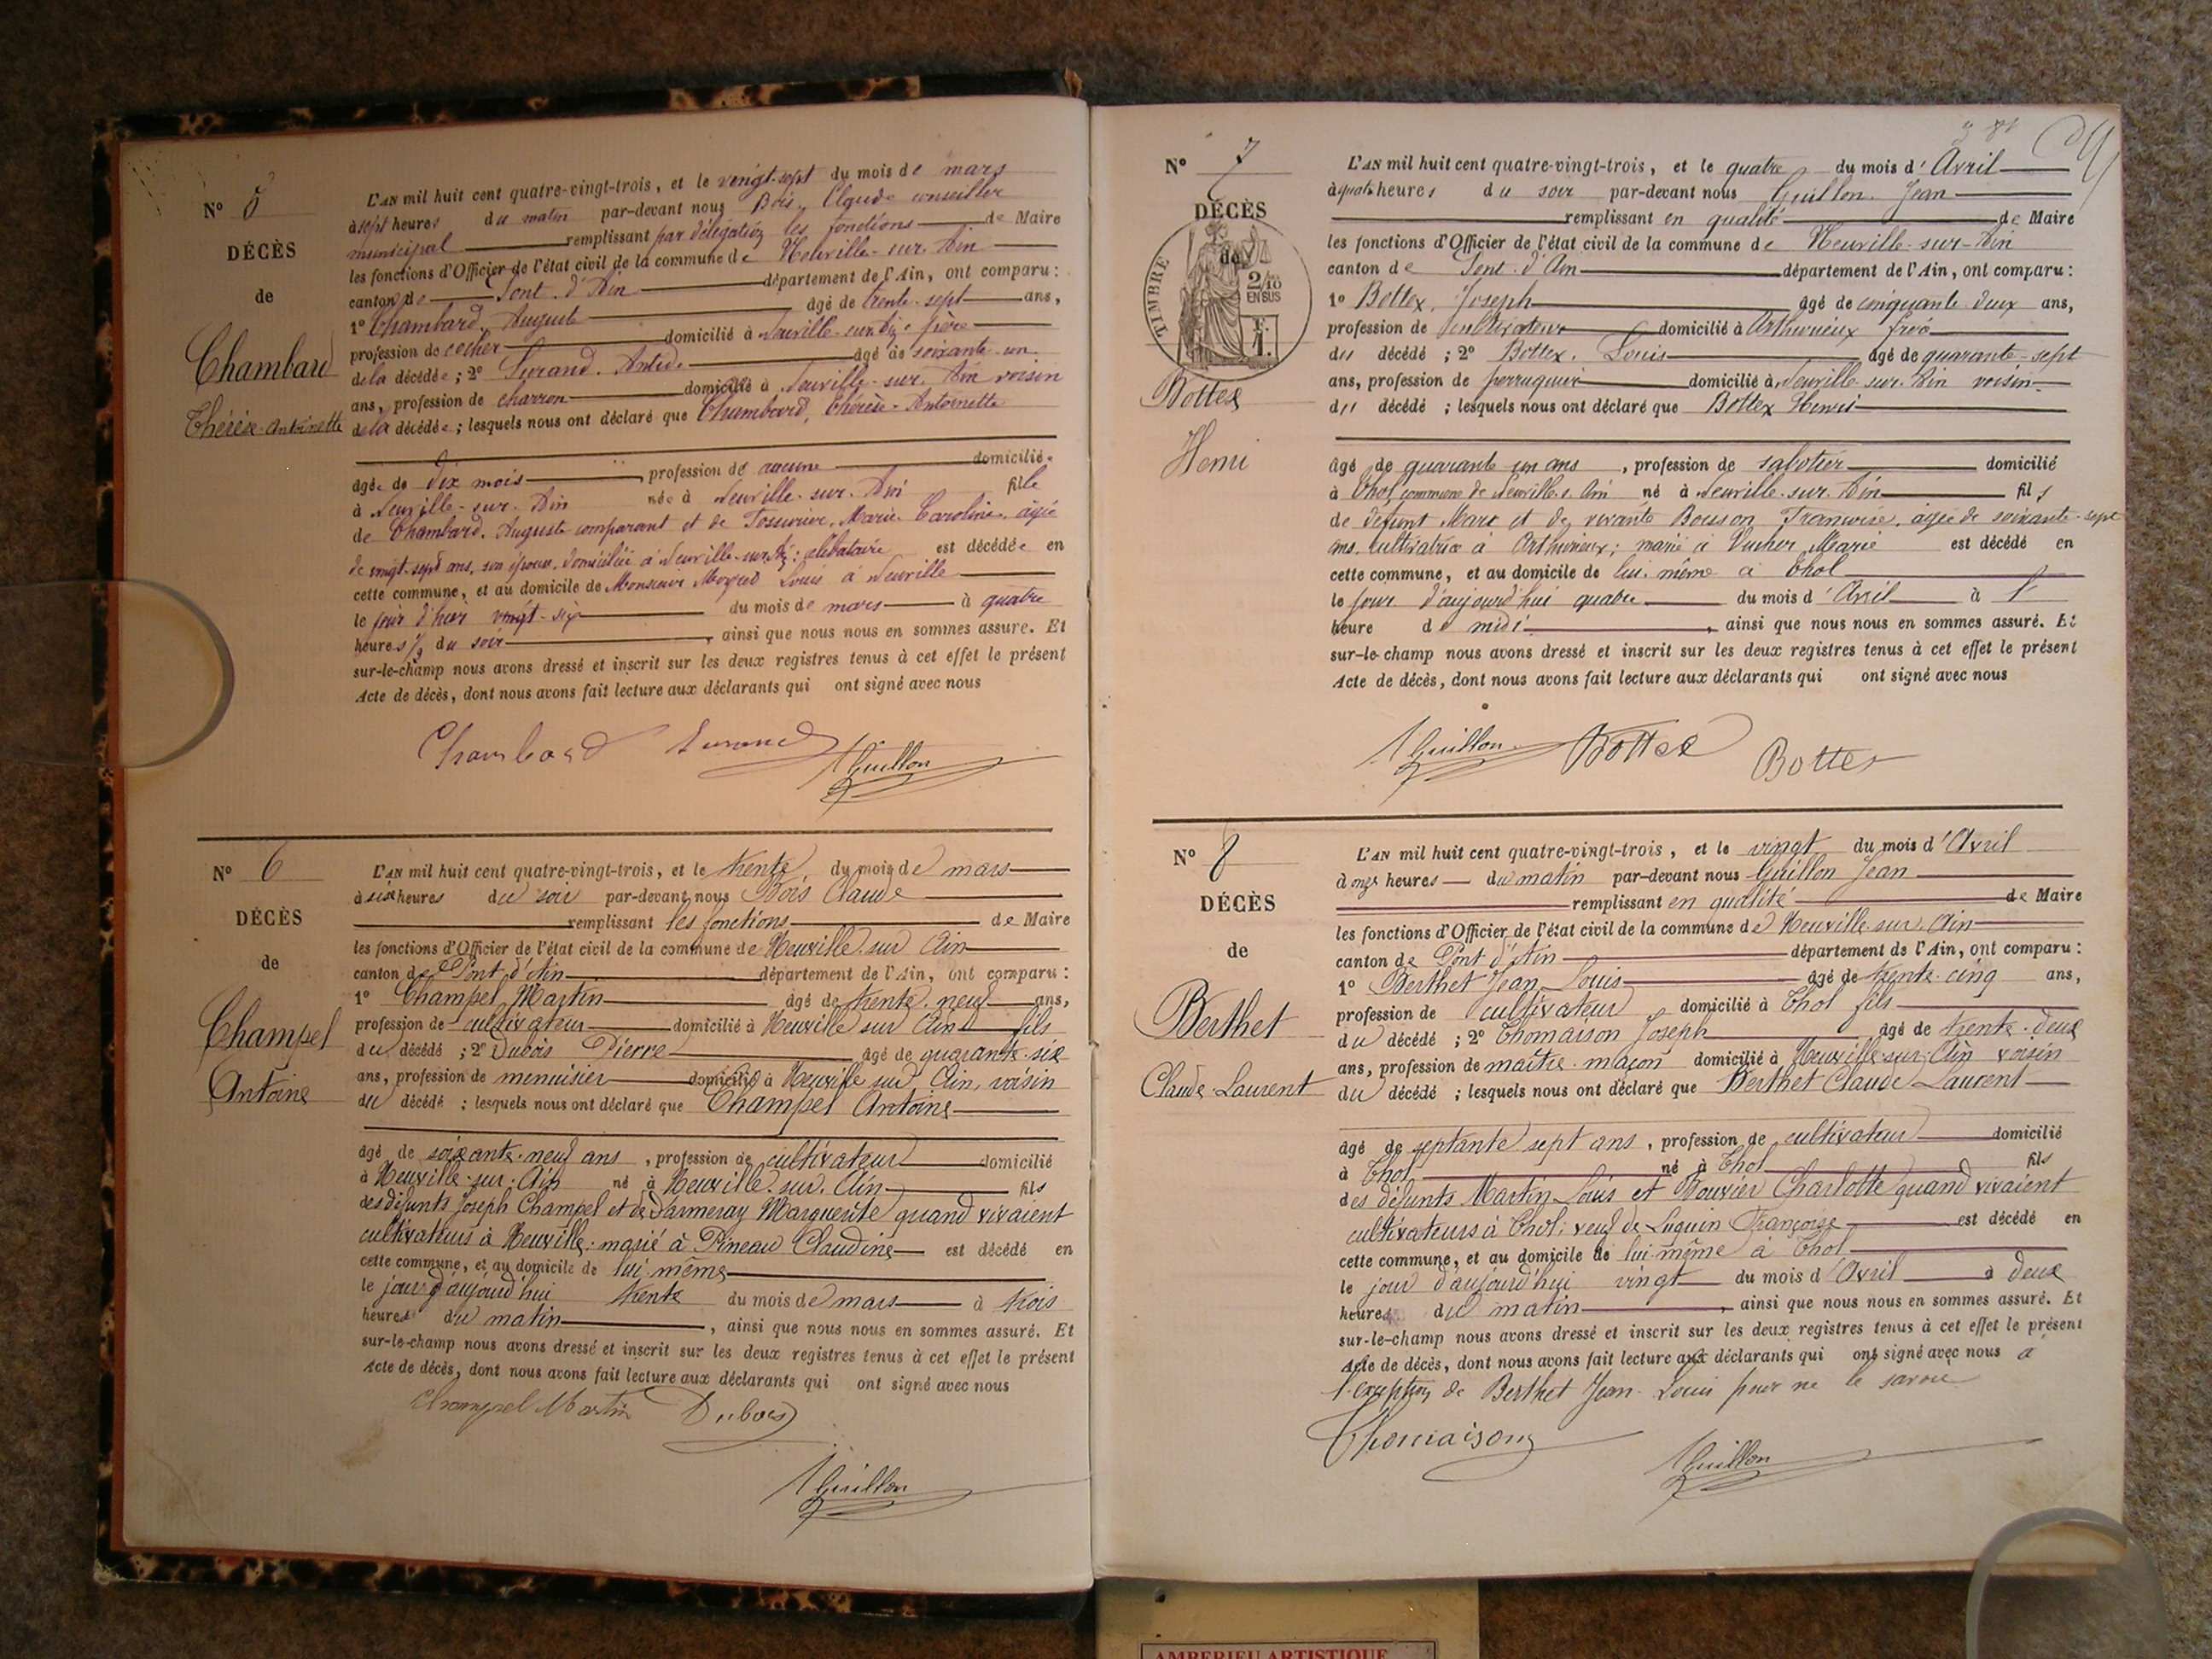 N° 5
DÉCÈS
de
Chambard
Thérèse-Antoinette
L'AN mil huit cent quatre-vingt-trois, et le vingt-sept du mois de mars
à sept heures du matin par-devant nous Bois, Claude conseiller
municipal remplissant par délégation les fonctions de Maire
les fonctions d'Officier de l'état civil de la commune de Neuville-sur-Ain
canton de Pont-d'Ain département de l'Ain, ont comparu :
1° Chambard, Auguste âgé de trente-sept ans,
profession de cocher domicilié à Neuville-sur-Ain père
de la décédée ; 2° Durand, âgé de soixante-un
ans, profession de charron domicilié à Neuville-sur-Ain voisin
de la décédée ; lesquels nous ont déclaré que Chambard, Thérèse-Antoinette
âgée de dix mois, profession de aucune domiciliée
à Neuville-sur-Ain née à Neuville-sur-Ain fille
de Chambard, Auguste comparant et de Marie Caroline, âgée
de vingt-sept ans, son épouse, domiciliée à Neuville-sur-Ain ; célibataire est décédée en
cette commune, et au domicile de Monsieur Louis à Neuville
le jour d'hier vingt-six du mois de mars à quatre
heures ½ du soir, ainsi que nous nous en sommes assuré. Et
sur-le-champ nous avons dressé et inscrit sur les deux registres tenus à cet effet le présent
Acte de décès, dont nous avons fait lecture aux déclarants qui ont signé avec nous
Chambard Durand Guillon
N° 6
DÉCÈS
de
Champel
Antoine
L'AN mil huit cent quatre-vingt-trois, et le trente du mois de mars
à six heures du soir par-devant nous Bois Claude
remplissant les fonctions de Maire
les fonctions d'Officier de l'état civil de la commune de Neuville sur Ain
canton de Pont d'Ain département de l'Ain, ont comparu :
1° Champel Martin âgé de trente-neuf ans,
profession de cultivateur domicilié à Neuville sur Ain fils
du décédé ; 2° Dubois Pierre âgé de quarante-six
ans, profession de menuisier domicilié à Neuville sur Ain, voisin
du décédé ; lesquels nous ont déclaré que Champel Antoine
âgé de soixante-neuf ans, profession de cultivateur domicilié
à Neuville-sur-Ain né à Neuville-sur-Ain fils
des défunts Joseph Champel et de Darmeray Marguerite quand vivaient
cultivateurs à Neuville ; marié à Pineau Claudine est décédé en
cette commune, et au domicile de lui-même
le jour d'aujourd'hui trente du mois de mars à trois
heures du matin, ainsi que nous nous en sommes assuré. Et
sur-le-champ nous avons dressé et inscrit sur les deux registres tenus à cet effet le présent
Acte de décès, dont nous avons fait lecture aux déclarants qui ont signé avec nous
Champel Martin Dubois
Guillon
N° 7
DÉCÈS
de
TIMBRE
2/10
EN SUS
Bottex
Henri
L'AN mil huit cent quatre-vingt-trois, et le quatre du mois d'Avril
à quatre heures du soir par-devant nous Guillon Jean
remplissant en qualité de Maire
les fonctions d'Officier de l'état civil de la commune de Neuville-sur-Ain
canton de Pont-d'Ain département de l'Ain, ont comparu :
1° Bottex, Joseph âgé de cinquante-deux ans,
profession de cultivateur domicilié à Arthurieux frère
du décédé ; 2° Bottex, Louis âgé de quarante-sept
ans, profession de perruquier domicilié à Neuville-sur-Ain voisin
du décédé ; lesquels nous ont déclaré que Bottex Henri
âgé de quarante un ans, profession de sabotier domicilié
à Thol commune de Neuville s. Ain né à Neuville-sur-Ain fils
de défunt Marc et de vivante Bouson Françoise, âgée de soixante-sept
ans, cultivatrice à Arthurieux ; marié à Vucher Marie est décédé en
cette commune, et au domicile de lui-même à Thol
le jour d'aujourd'hui quatre du mois d'Avril à 1
heure de midi, ainsi que nous nous en sommes assuré. Et
sur-le-champ nous avons dressé et inscrit sur les deux registres tenus à cet effet le présent
Acte de décès, dont nous avons fait lecture aux déclarants qui ont signé avec nous
Guillon Bottex Bottex
N° 8
DÉCÈS
de
Berthet
Claude-Laurent
L'AN mil huit cent quatre-vingt-trois, et le vingt du mois d'Avril
à onze heures du matin par-devant nous Guillon Jean
remplissant en qualité de Maire
les fonctions d'Officier de l'état civil de la commune de Neuville-sur-Ain
canton de Pont d'Ain département de l'Ain, ont comparu :
1° Berthet Jean Louis âgé de trente-cinq ans,
profession de cultivateur domicilié à Thol fils
du décédé ; 2° Thomasson Joseph âgé de trente-deux
ans, profession de maître-maçon domicilié à Neuville-sur-Ain voisin
du décédé ; lesquels nous ont déclaré que Berthet Claude-Laurent
âgé de septante sept ans, profession de cultivateur domicilié
à Thol né à Thol fils
des défunts Martin Louis et Bouvier Charlotte quand vivaient
cultivateurs à Thol ; veuf de Luquin Françoise est décédé en
cette commune, et au domicile de lui-même à Thol
le jour d'aujourd'hui vingt du mois d'Avril à deux
heures du matin, ainsi que nous nous en sommes assuré. Et
sur-le-champ nous avons dressé et inscrit sur les deux registres tenus à cet effet le présent
Acte de décès, dont nous avons fait lecture aux déclarants qui ont signé avec nous à
l'exception de Berthet Jean-Louis pour ne le savoir
Thomaison
Guillon
AMBERIEU ARTISTIQUE